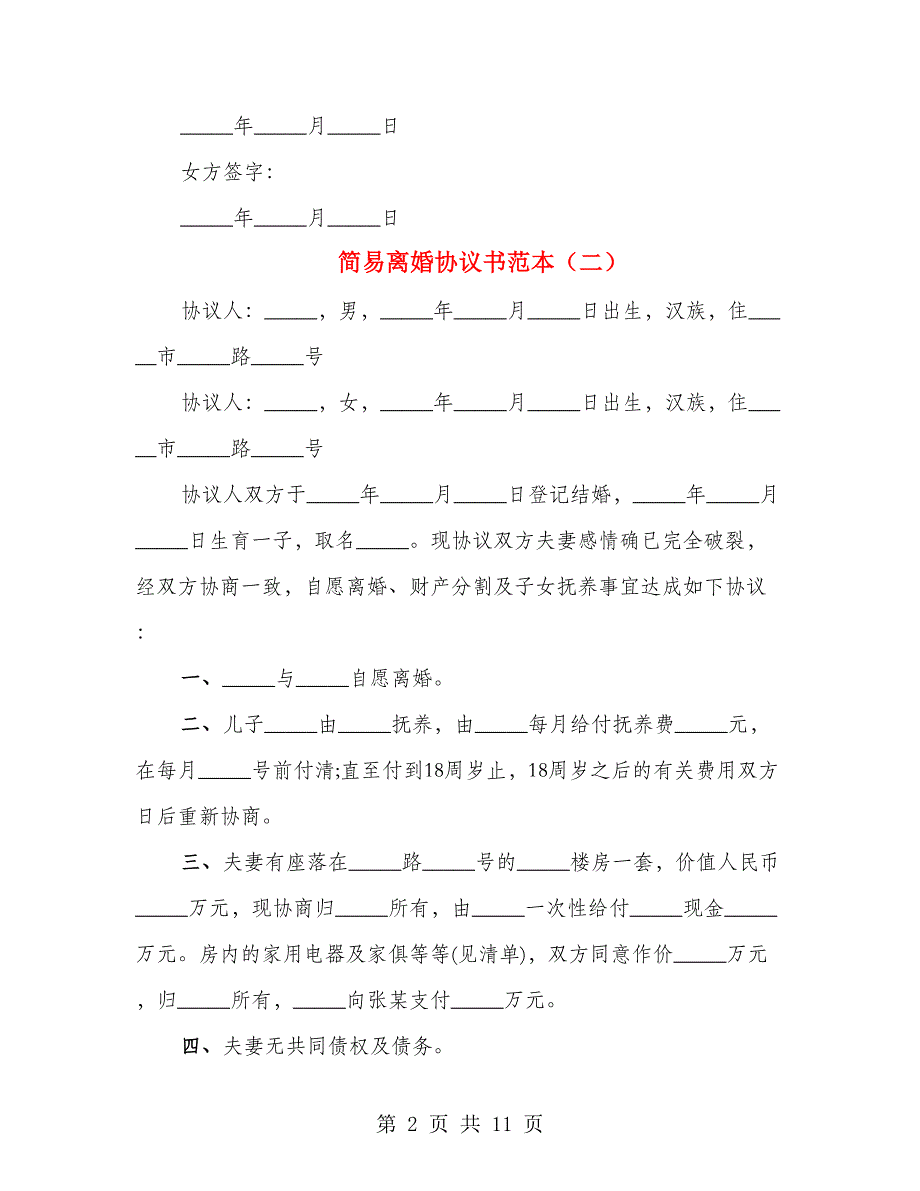 _____年_____月_____日
女方签字：
_____年_____月_____日
简易离婚协议书范本（二）
协议人：_____，男，_____年_____月_____日出生，汉族，住___
__市_____路_____号
协议人：_____，女，_____年_____月_____日出生，汉族，住___
__市_____路_____号
协议人双方于_____年_____月_____日登记结婚，_____年_____月
_____日生育一子，取名_____。现协议双方夫妻感情确已完全破裂，
经双方协商一致，自愿离婚、财产分割及子女抚养事宜达成如下协议
：
一、_____与_____自愿离婚。
二、儿子_____由_____抚养，由_____每月给付抚养费_____元，
在每月_____号前付清;直至付到18周岁止，18周岁之后的有关费用双方
日后重新协商。
三、夫妻有座落在_____路_____号的_____楼房一套，价值人民币
_____万元，现协商归_____所有，由_____一次性给付_____现金_____
万元。房内的家用电器及家俱等等(见清单)，双方同意作价_____万元
，归_____所有，_____向张某支付_____万元。
四、夫妻无共同债权及债务。
第 2 页 共 11 页